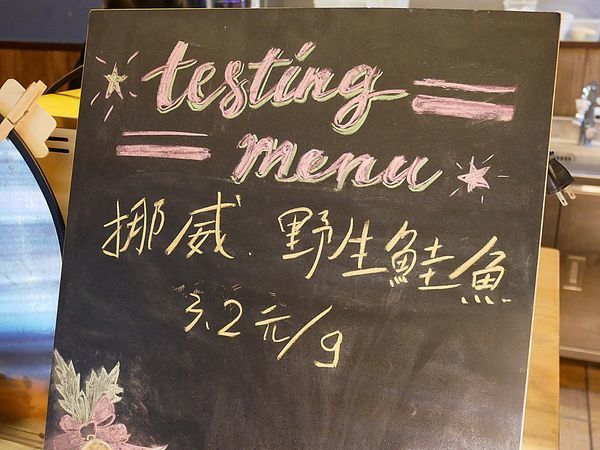 testing
menu
挪威、野生鮭魚
3.2元/g